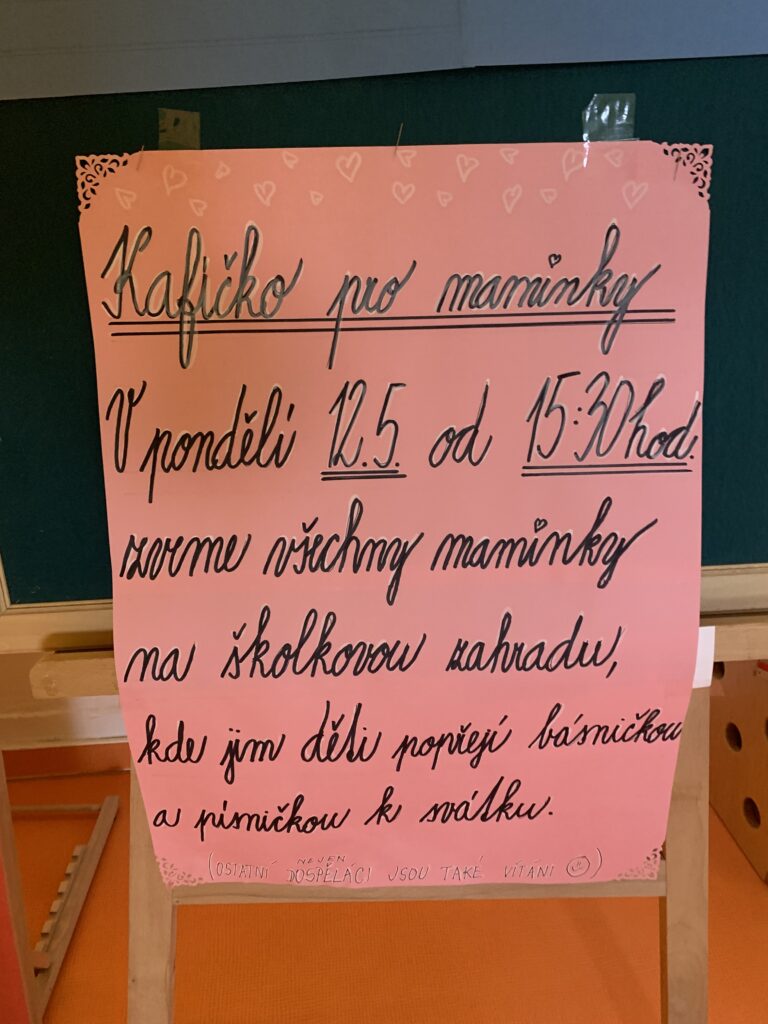 Kafíčko pro maminky
V pondělí 12.5. od 15:30 hod.
zveme všechny maminky
na školkovou zahradu,
kde jim děti popřejí básničkou
a písničkou k svátku.
NEJEN
(OSTATNÍ DOSPĚLÁCI JSOU TAKÉ VÍTÁNI)